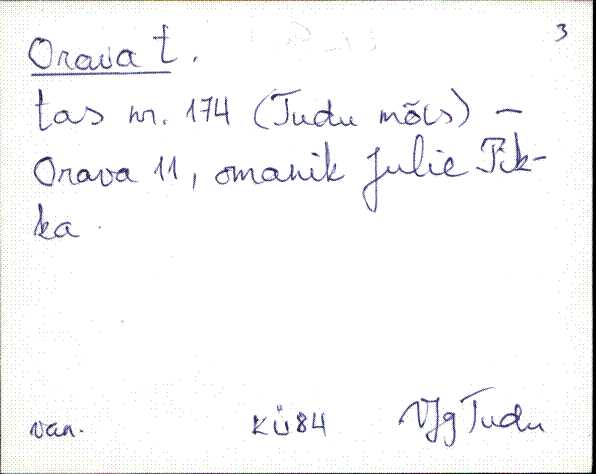 3
Orava t.
tas nr. 174 (Tudu mõis) –
Orava 11, omanik Julie Pik-
ka.
van. KÜ 84 VJg Tudu